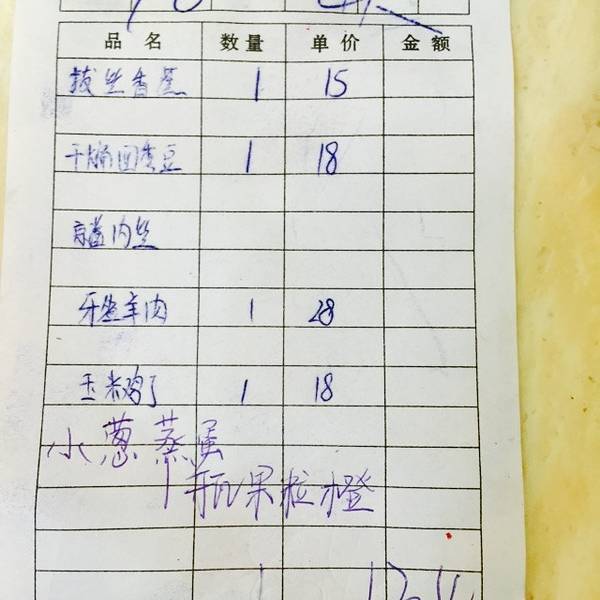 品名 数量 单价 金额
拔丝香蕉 1 15
干煸回香豆 1 18
肉丝
牙签羊肉 1 28
玉米鸡丁 1 18
小葱蒸蛋
1瓶果粒橙